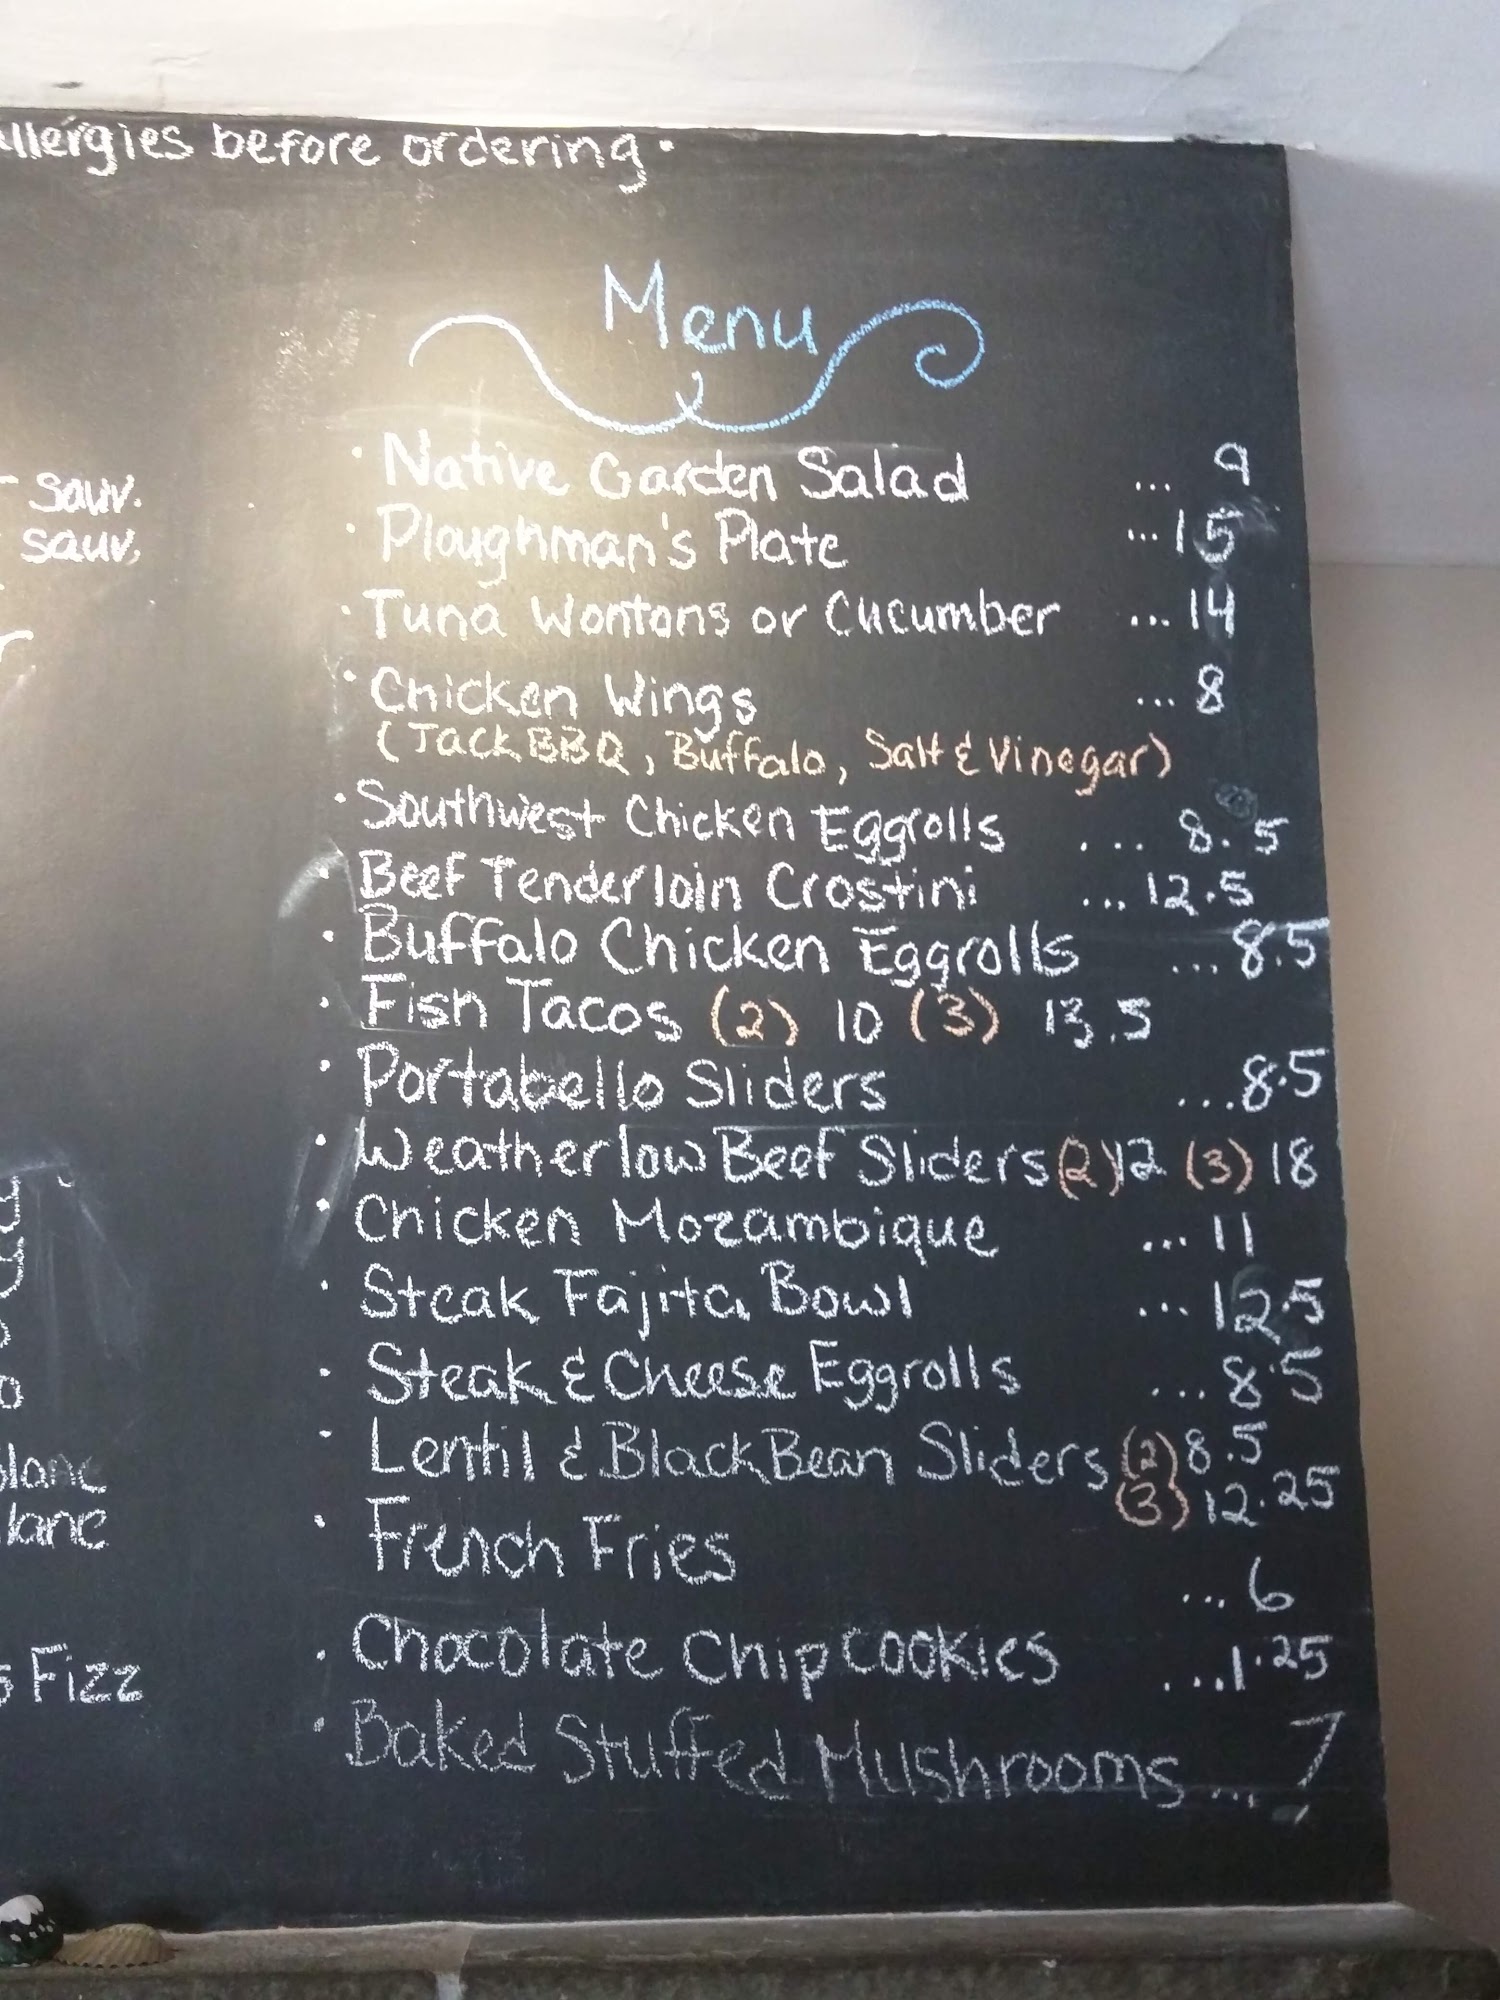 allergies before ordering.
Menu
· Native Garden Salad ... 9
· Ploughman's Plate ... 15
· Tuna Wontons or Cucumber ... 14
· Chicken Wings ... 8
(Jack BBQ, Buffalo, Salt & Vinegar)
· Southwest Chicken Eggrolls ... 8.5
· Beef Tenderloin Crostini ... 12.5
· Buffalo Chicken Eggrolls ... 8.5
· Fish Tacos (2) 10 (3) 13.5
· Portabello Sliders ... 8.5
· Weatherlow Beef Sliders (2) 12 (3) 18
· Chicken Mozambique ... 11
· Steak Fajita Bowl ... 12.5
· Steak & Cheese Eggrolls ... 8.5
· Lentil & Black Bean Sliders (2) 8.5
(3) 12.25
· French Fries ... 6
· Chocolate Chip Cookies ... 1.25
· Baked Stuffed Mushrooms ... 7
Sauv.
Sauv.
Fizz